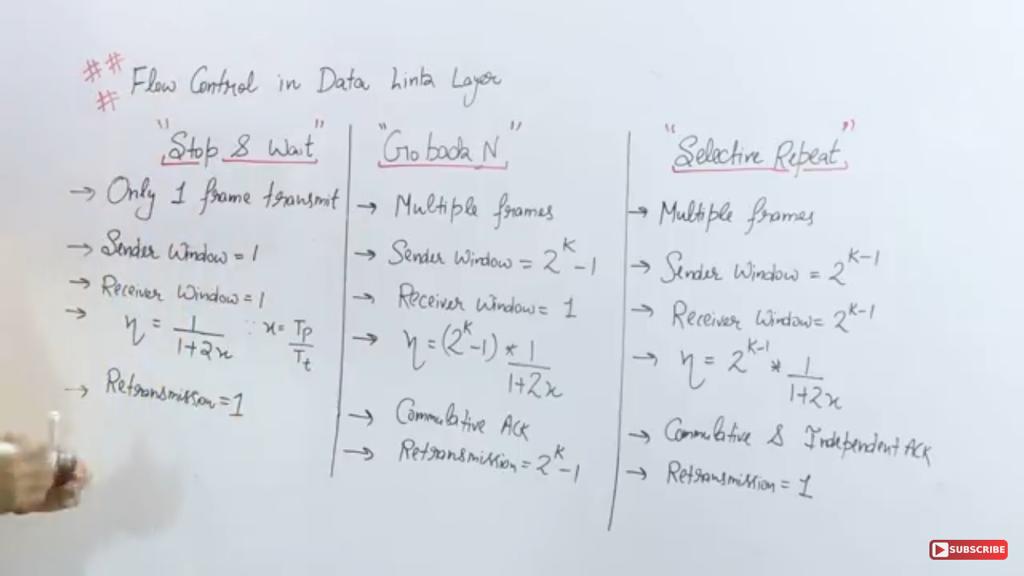 ## Flow Control in Data Link Layer
#
"Stop & Wait"
→ Only 1 frame transmit
→ Sender Window = 1
→ Receiver Window = 1
→ η = 1/(1+2x) ∵ x = Tp/Tt
→ Retransmission = 1
"Go back N"
→ Multiple frames
→ Sender Window = 2^K - 1
→ Receiver Window = 1
→ η = (2^K - 1) * 1/(1+2x)
→ Commulative ACK
→ Retransmission = 2^K - 1
"Selective Repeat"
→ Multiple frames
→ Sender Window = 2^(K-1)
→ Receiver Window = 2^(K-1)
→ η = 2^(K-1) * 1/(1+2x)
→ Commulative & Independent ACK
→ Retransmission = 1
SUBSCRIBE